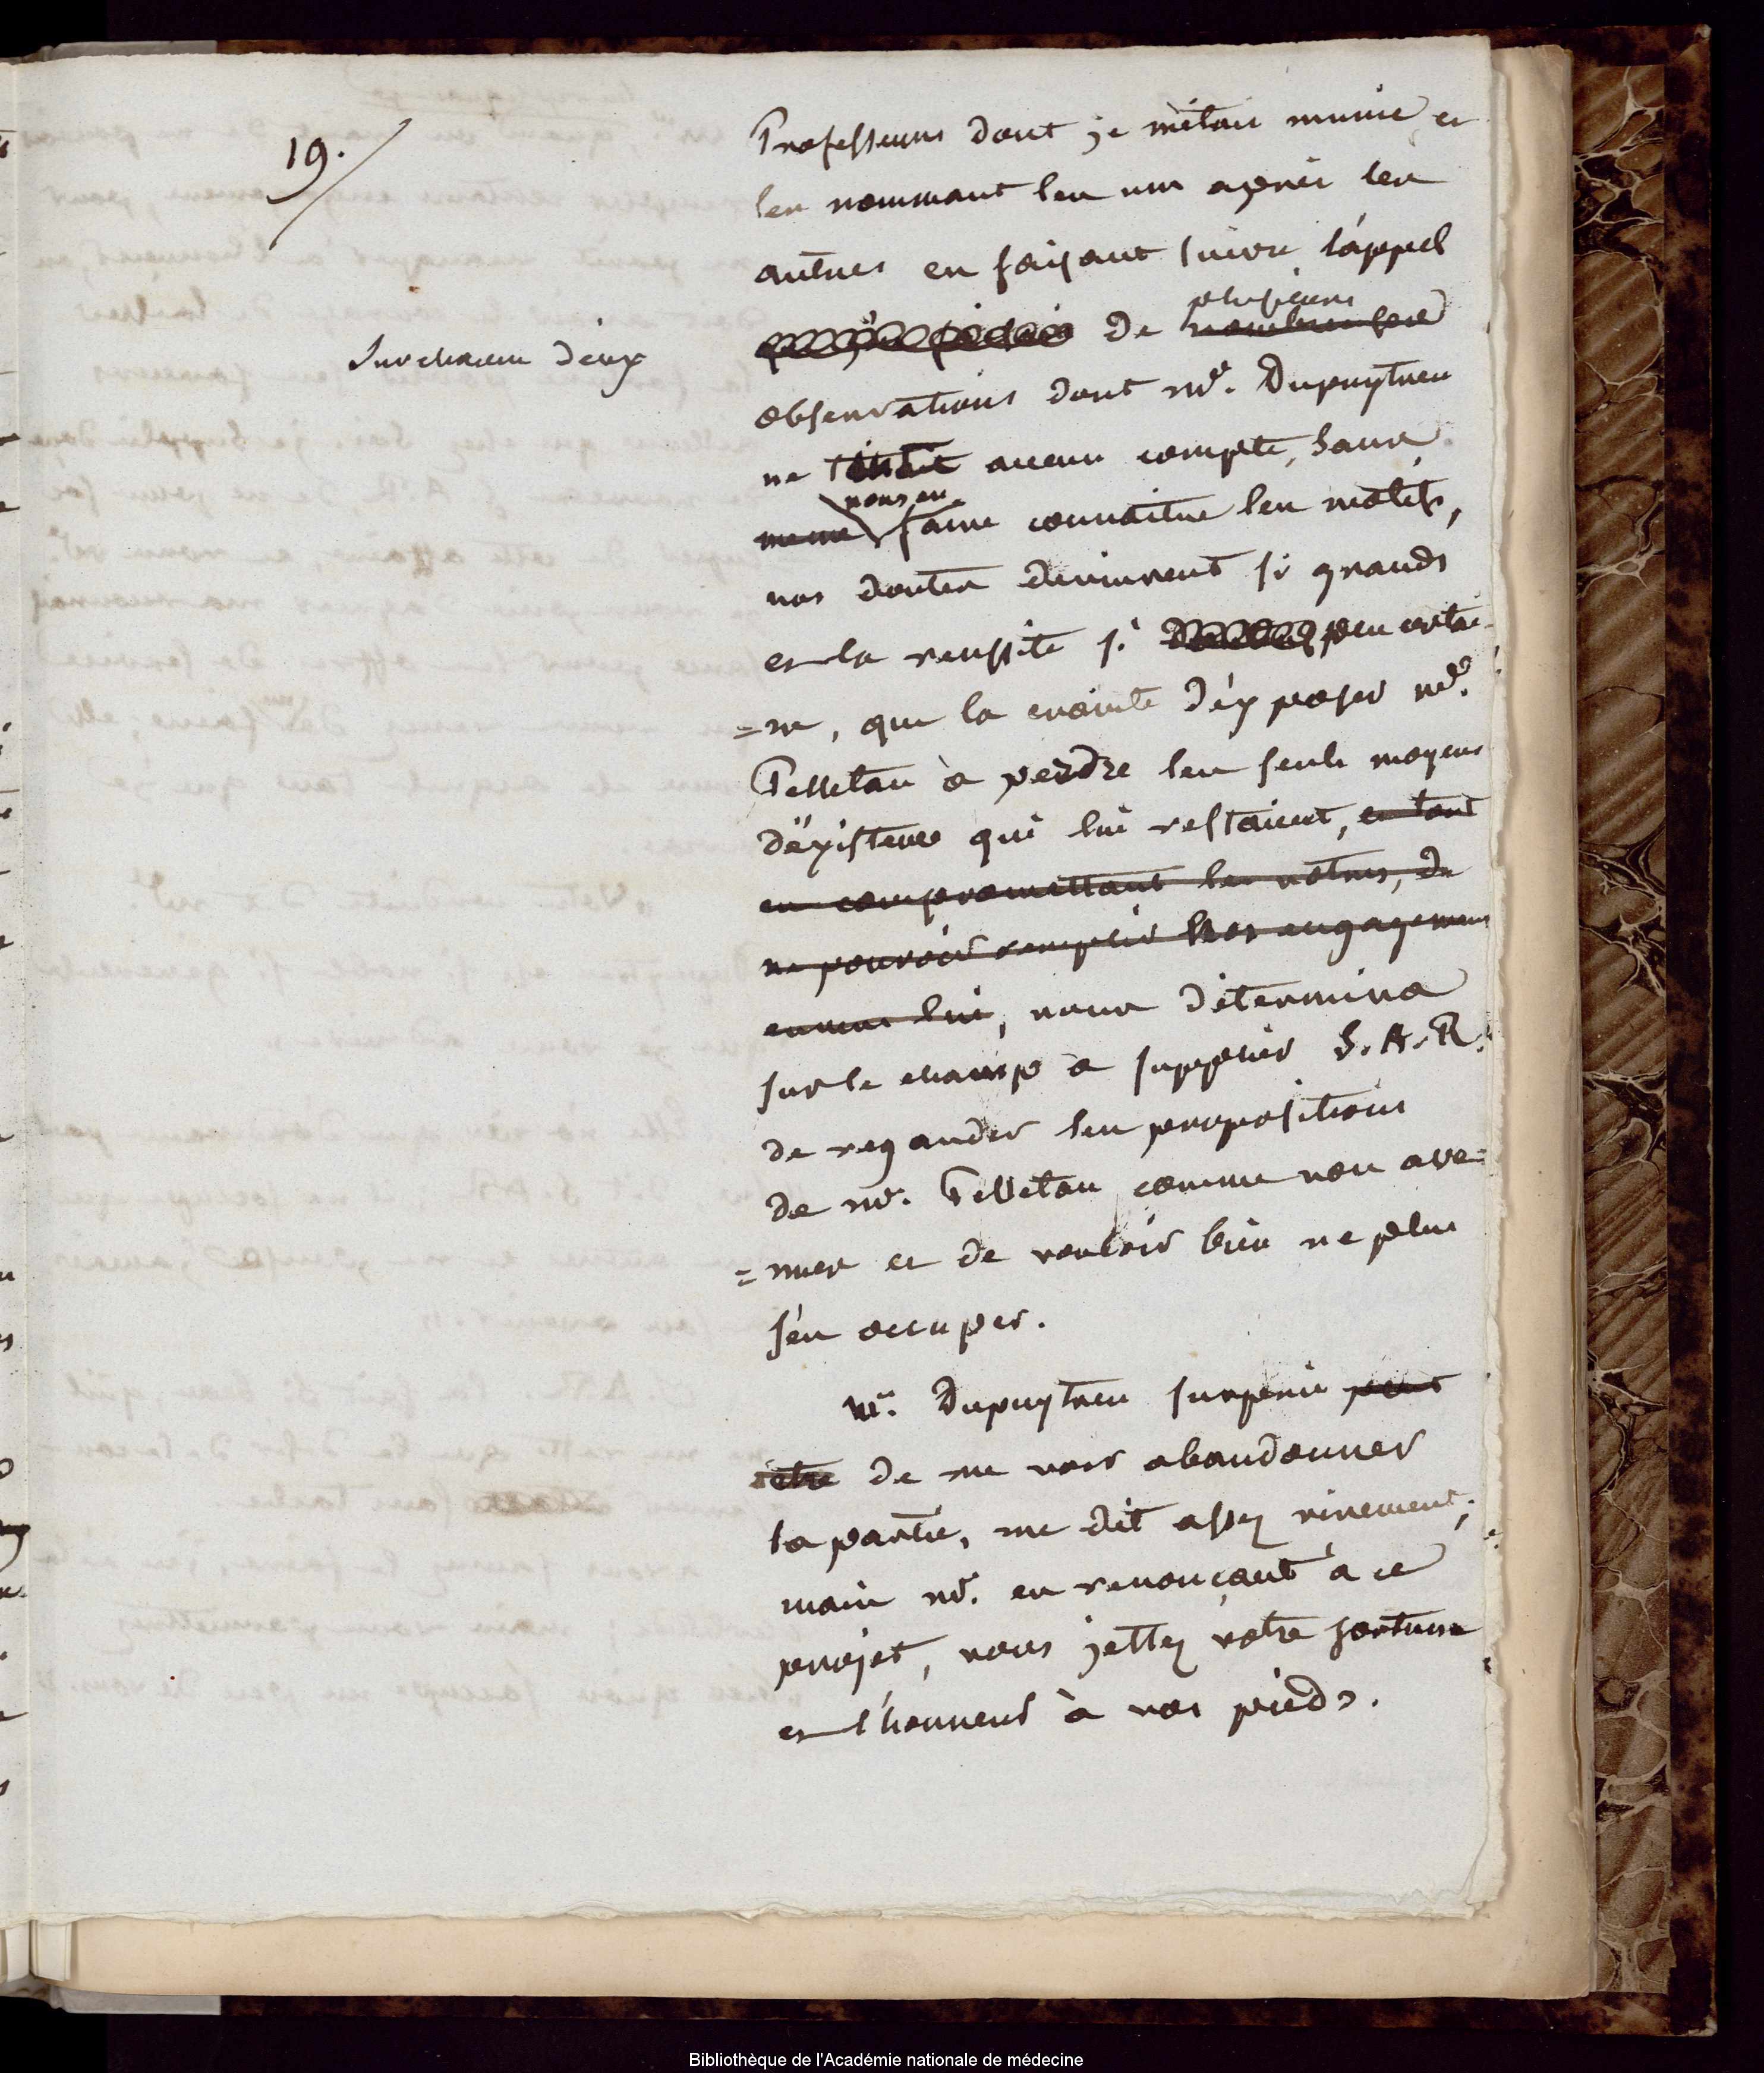 19.
Professeurs dont je m'étais munie et
les nommant les uns après les
autres en faisant suivre l'appel
sur chacun d'eux
de plusieurs nombreuses
observations dont Mr. Dupuytren
ne tenait aucun compte, sans
meme nous en faire connaitre les motifs,
nos doutes devinrent si grands
et la reussite si peu certai-
=ne, que la crainte d'éxposer Mr.
Pelletan à perdre les seuls moyens
d'éxistence qui lui restaient, en tout
en compromettant les notres, de
ne pouvoir remplir nos engagemens
envers lui, nous détermina
sur le champ à supplier S. A. R.
de regarder les propositions
de Mr. Pelletan comme non ave=
=nues et de vouloir bien ne plus
s'en occuper.
Mr. Dupuytren surpris peut
être de me voir abandonner
la partie, me dit assez vivement;
mais Mr. en renonçant à ce
projet, vous jettez votre fortune
et l'honneur à vos pieds.
Bibliothèque de l'Académie nationale de médecine